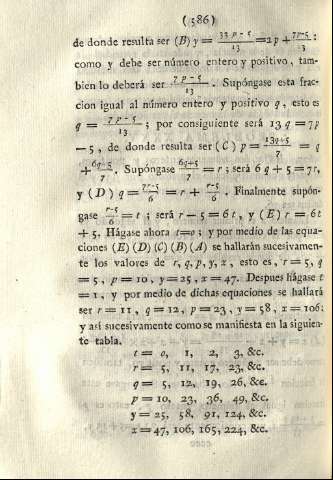 (386)
de donde resulta ser (B) y = 33 p - 5 / 13 = 2p + 7p-5 / 13 :
como y debe ser número entero y positivo, tam-
bien lo deberá ser 7 p - 5 / 13 . Supóngase esta frac-
cion igual al número entero y positivo q, esto es
q = 7 p - 5 / 13 ; por consiguiente será 13 q = 7p
- 5 , de donde resulta ser (C) p = 13q+5 / 7 = q
+ 6q+5 / 7 . Supóngase 6q+5 / 7 = r ; será 6 q + 5 = 7r,
y (D) q = 7r-5 / 6 = r + r-5 / 6 . Finalmente supón-
gase r-5 / 6 = t ; será r - 5 = 6t, y (E) r = 6t
+ 5. Hágase ahora t=0 ; y por medio de las equa-
ciones (E) (D) (C) (B) (A) se hallarán sucesivamen-
te los valores de r, q, p, y, x, esto es, r = 5, q
= 5, p = 10, y = 25, x = 47. Despues hágase t
= 1, y por medio de dichas equaciones se hallará
ser r = 11, q = 12, p = 23, y = 58, x = 106:
y así sucesivamente como se manifiesta en la siguien-
te tabla.
t = 0, 1, 2, 3, &c.
r = 5, 11, 17, 23, &c.
q = 5, 12, 19, 26, &c.
p = 10, 23, 36, 49, &c.
y = 25, 58, 91, 124, &c.
x = 47, 106, 165, 224, &c.